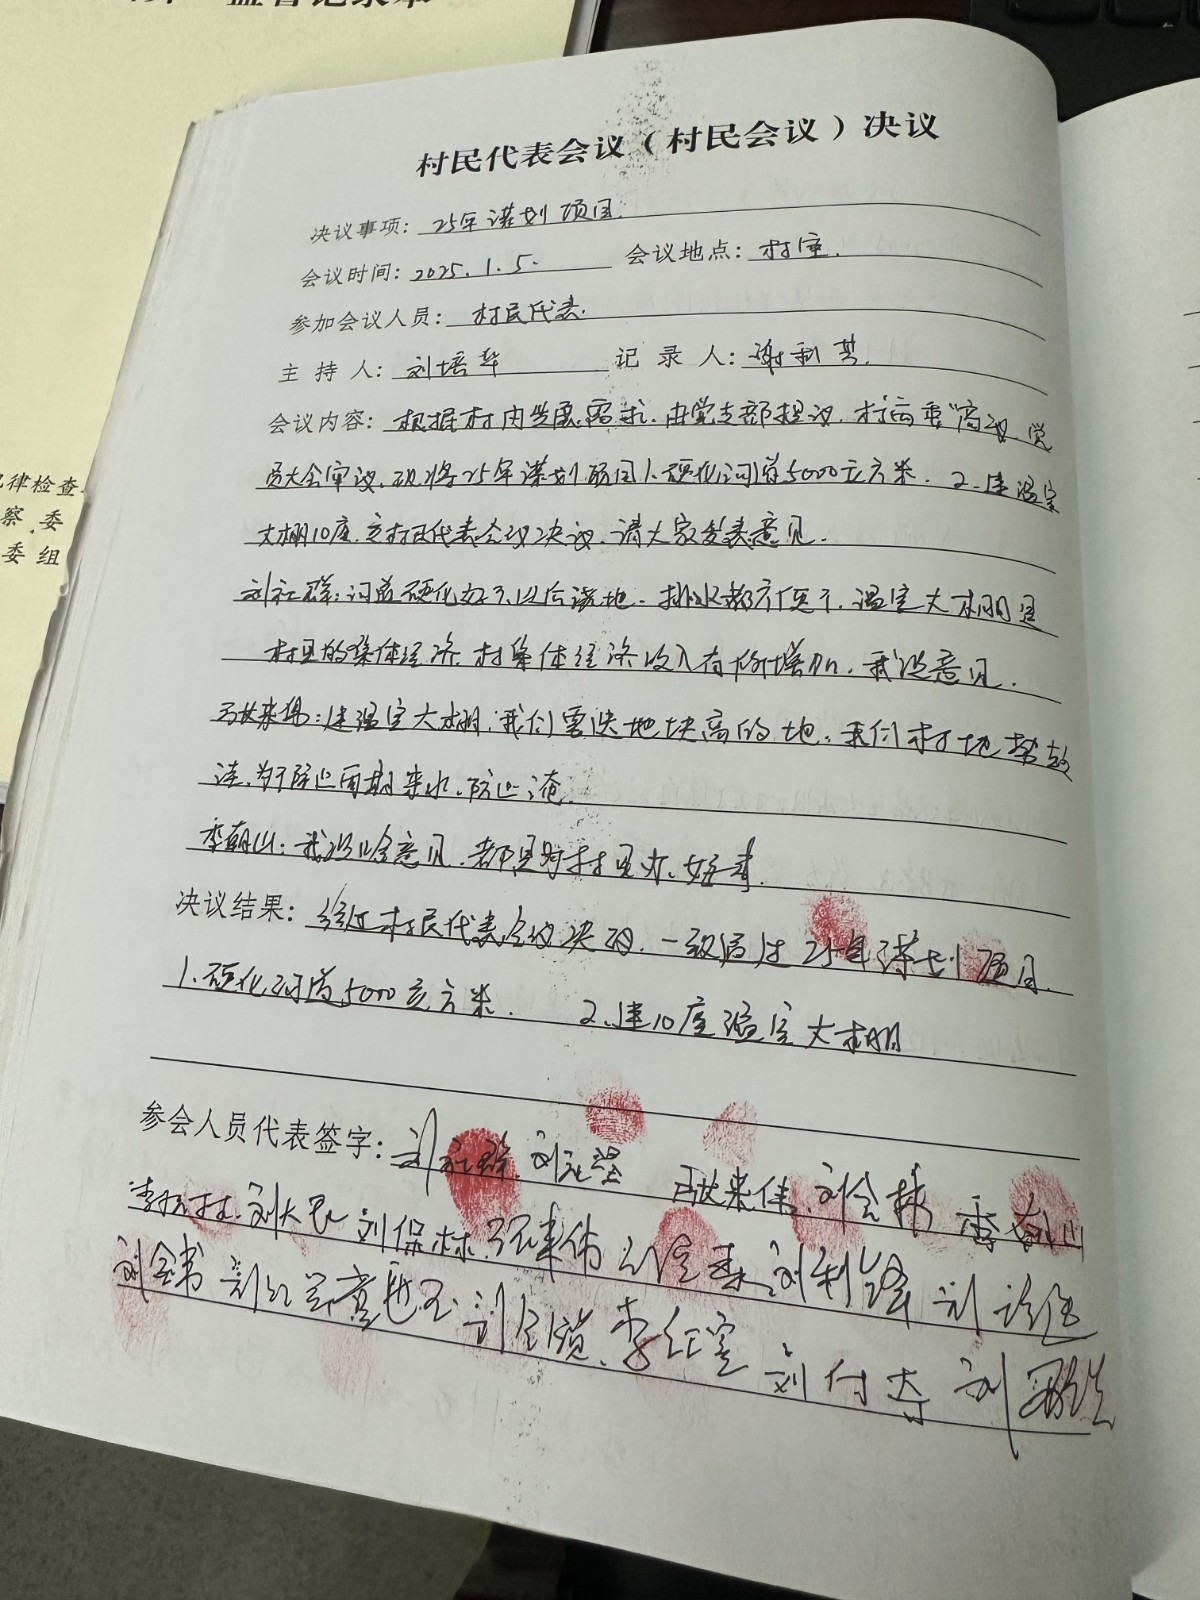 监督记录本
律检查
察委
委组
村民代表会议（村民会议）决议
决议事项：25年谋划项目.
会议时间：2025.1.5. 会议地点：村室.
参加会议人员：村民代表.
主持人：刘培华 记录人：谢利芳.
会议内容：根据村内发展需求.由党支部提议.村两委"商议.党
员大会审议.现将25年谋划项目1.硬化河道5000立方米. 2.建温室
大棚10座.交村民代表会议决议.请大家发表意见.
刘社群：河道硬化好了.以后浇地.排水都方便了.温室大棚是
村里的集体经济.村集体经济收入有所增加.我没意见.
建温室大棚.我们要选地块高的地.我们村地势较
洼.为了防止雨期来水.防止淹.
李朝山：我没啥意见.都是对村里办好事.
决议结果：经过村民代表会议决议.一致通过25年谋划项目.
1.硬化河道5000立方米. 2.建10座温室大棚
参会人员代表签字：刘社群. 刘会林
刘大民 刘保林 刘利锋
刘付